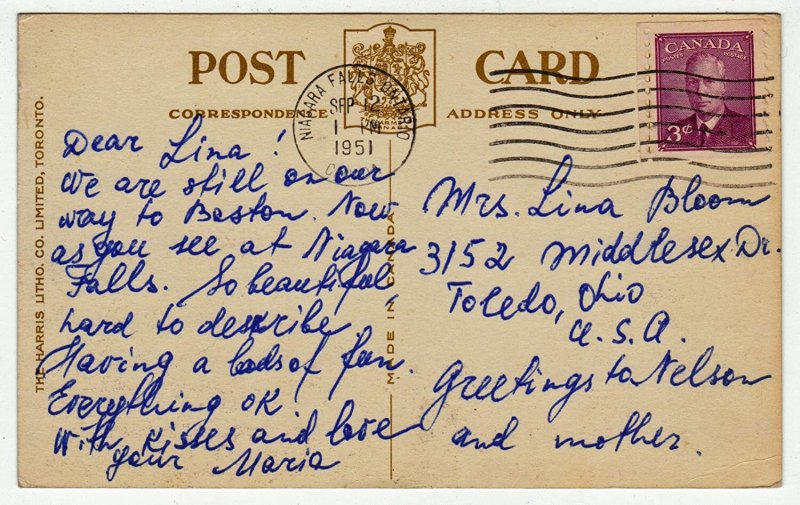 POST CARD
CORRESPONDENCE ADDRESS ONLY
CANADA
POSTES POSTAGE
3¢
NIAGARA FALLS ONTARIO
SEP 12
1 PM
1951
Dear Lina!
We are still on our
way to Boston. Now
as you see at Niagara
Falls. So beautiful
hard to describe
Having a loads of fun.
Everything OK!
With kisses and love
your Maria
Mrs. Lina Bloom
3152 Middlesex Dr.
Toledo, Ohio
U.S.A.
Greetings to Nelson
and mother.
THE HARRIS LITHO. CO. LIMITED, TORONTO.
MADE IN CANADA